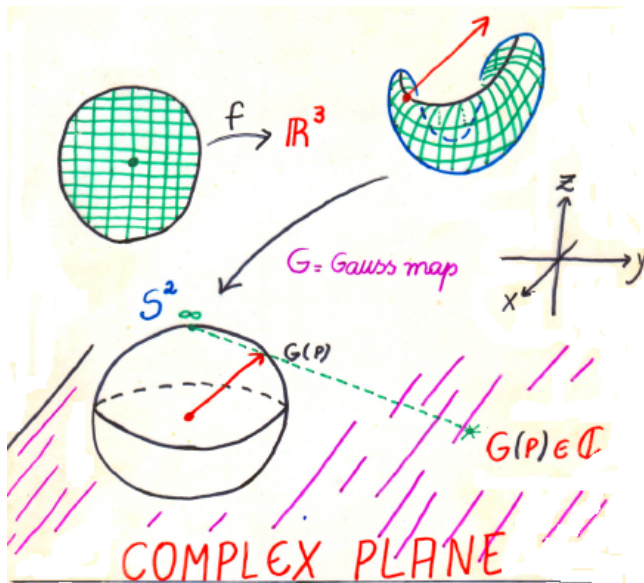 f
ℝ³
z
y
x
G = Gauss map
S²
∞
G(p)
G(p) ∈ ℂ
COMPLEX PLANE